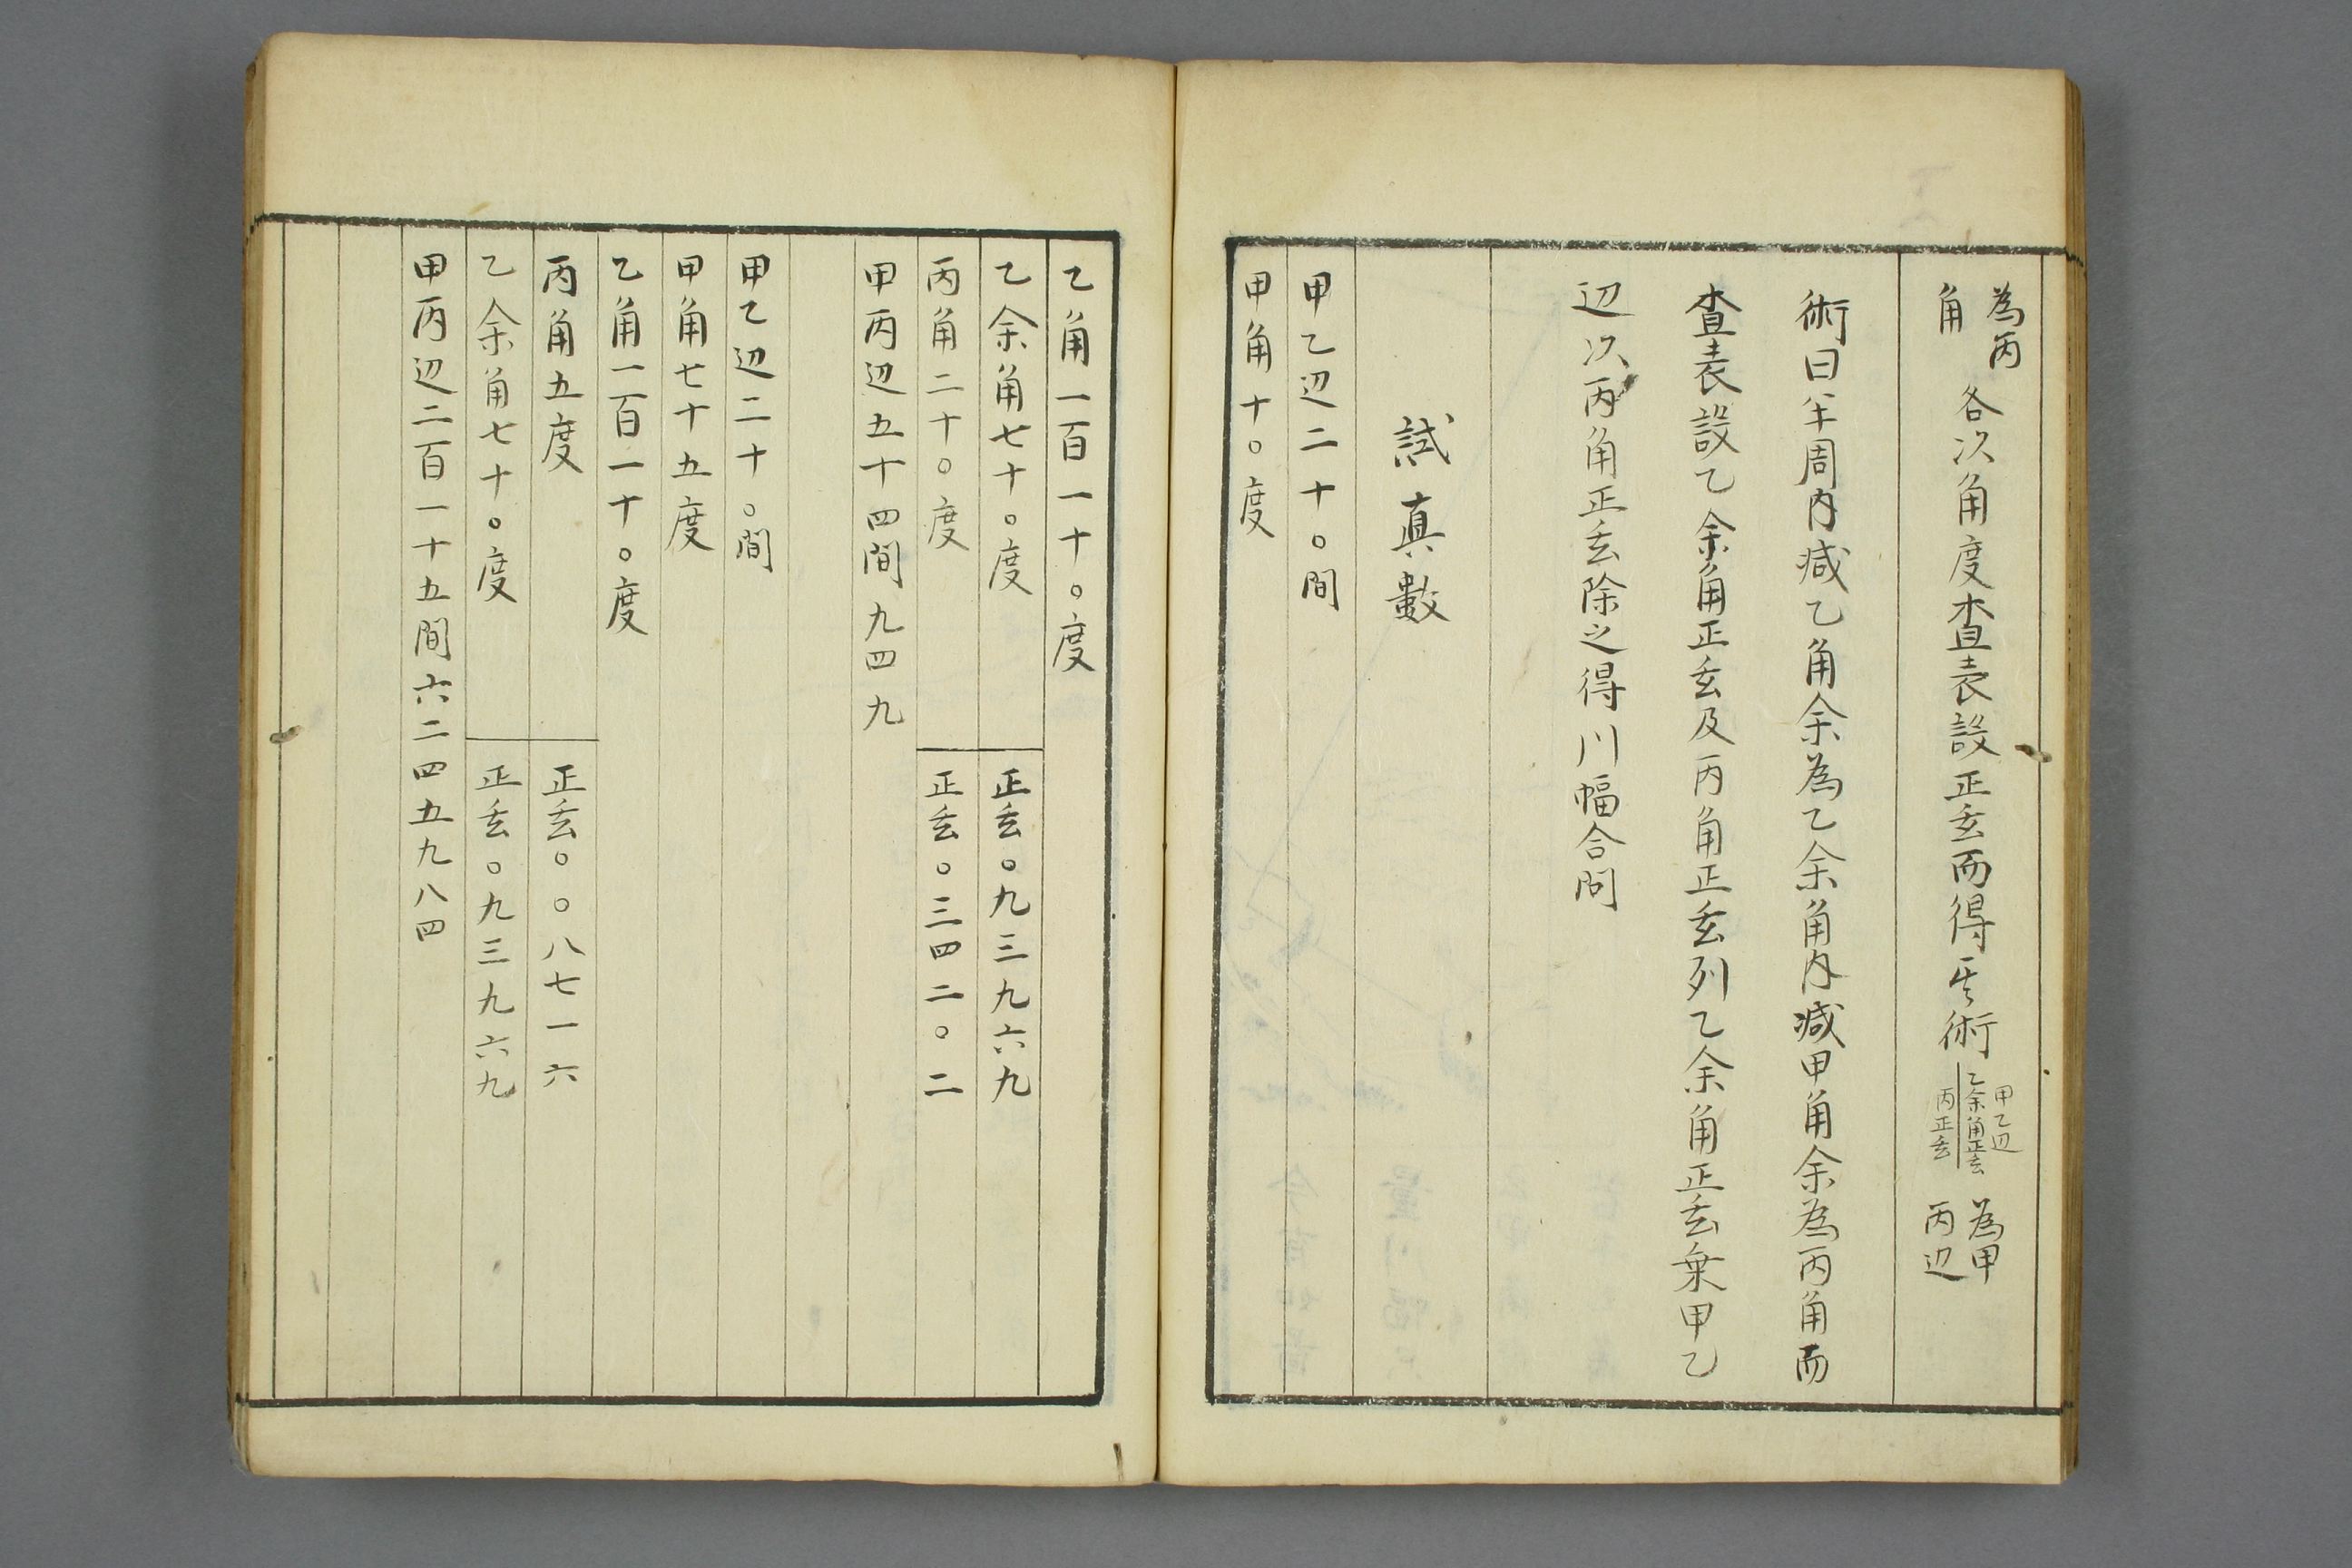 為丙
角
各次角度査表設正玄而得其術
甲乙辺
乙余角正玄
丙正玄
為甲
丙辺
術曰半周内減乙角余為乙余角内減甲角余為丙角而
査表設乙余角正玄及丙角正玄列乙余角正玄乗甲乙
辺次丙角正玄除之得川幅合問
試真数
甲乙辺二十〇間
甲角十〇度
乙角一百一十〇度
乙余角七十〇度 正玄〇九三九六九
丙角二十〇度 正玄〇三四二〇二
甲丙辺五十四間九四九
甲乙辺二十〇間
甲角七十五度
乙角一百一十〇度
丙角五度 正玄〇〇八七一六
乙余角七十〇度 正玄〇九三九六九
甲丙辺二百一十五間六二四五九八四